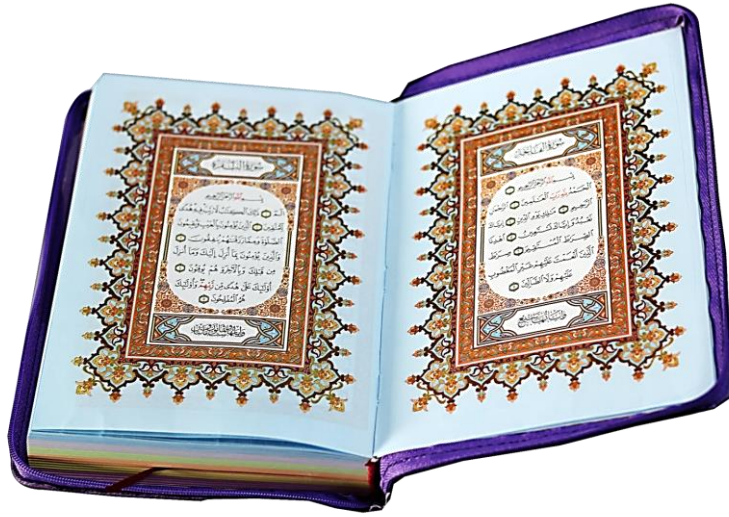 سُورَةُ الفَاتِحَةِ
بِسْمِ اللَّهِ الرَّحْمَٰنِ الرَّحِيمِ
الْحَمْدُ لِلَّهِ رَبِّ الْعَٰلَمِينَ الرَّحْمَٰنِ
الرَّحِيمِ مَٰلِكِ يَوْمِ الدِّينِ إِيَّاكَ
نَعْبُدُ وَإِيَّاكَ نَسْتَعِينُ اهْدِنَا
الصِّرَٰطَ الْمُسْتَقِيمَ صِرَٰطَ
الَّذِينَ أَنْعَمْتَ عَلَيْهِمْ غَيْرِ الْمَغْضُوبِ
عَلَيْهِمْ وَلَا الضَّالِّينَ
سُورَةُ البَقَرَةِ
بِسْمِ اللَّهِ الرَّحْمَٰنِ الرَّحِيمِ
الٓمٓ ذَٰلِكَ الْكِتَٰبُ لَا رَيْبَ فِيهِ هُدًى
لِلْمُتَّقِينَ الَّذِينَ يُؤْمِنُونَ بِالْغَيْبِ وَيُقِيمُونَ
الصَّلَوٰةَ وَمِمَّا رَزَقْنَٰهُمْ يُنْفِقُونَ
وَالَّذِينَ يُؤْمِنُونَ بِمَا أُنْزِلَ إِلَيْكَ وَمَا أُنْزِلَ
مِنْ قَبْلِكَ وَبِالْآخِرَةِ هُمْ يُوقِنُونَ
أُولَٰئِكَ عَلَىٰ هُدًى مِنْ رَبِّهِمْ وَأُولَٰئِكَ
هُمُ الْمُفْلِحُونَ